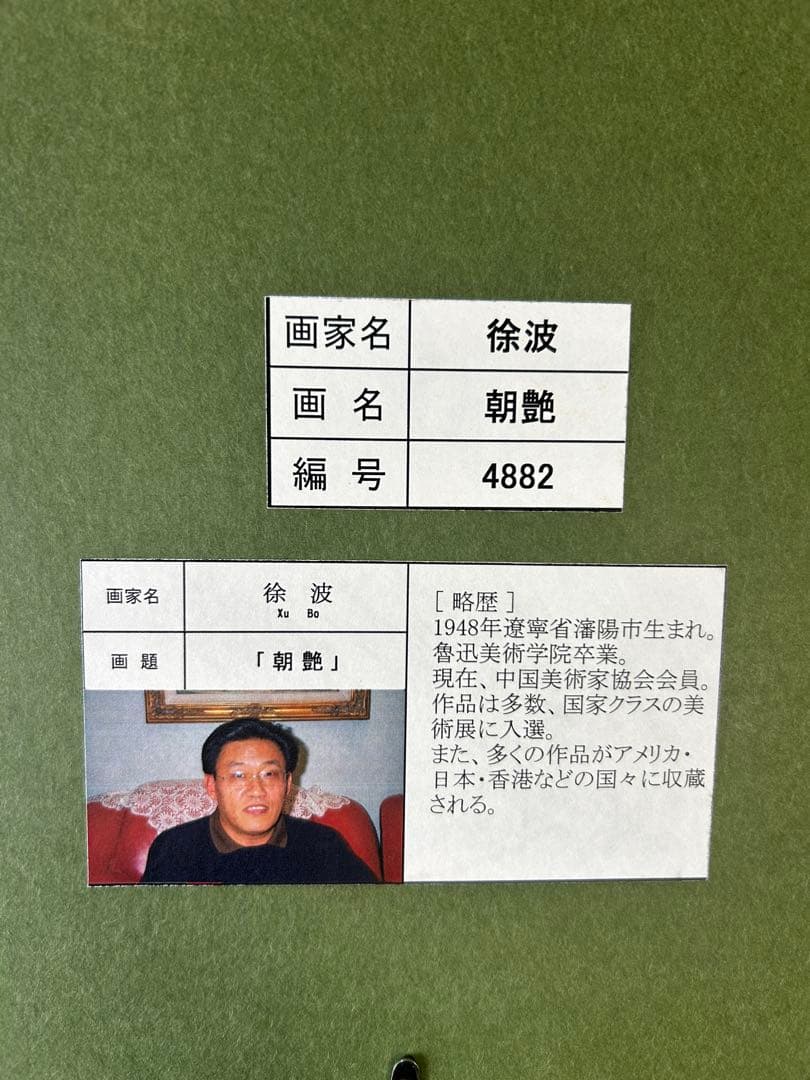 画家名 徐波
画 名 朝艶
編 号 4882
画家名 徐 波
Xu Bo
画 題 「朝艶」
[ 略歴 ]
1948年遼寧省瀋陽市生まれ。
魯迅美術学院卒業。
現在、中国美術家協会会員。
作品は多数、国家クラスの美
術展に入選。
また、多くの作品がアメリカ・
日本・香港などの国々に収蔵
される。